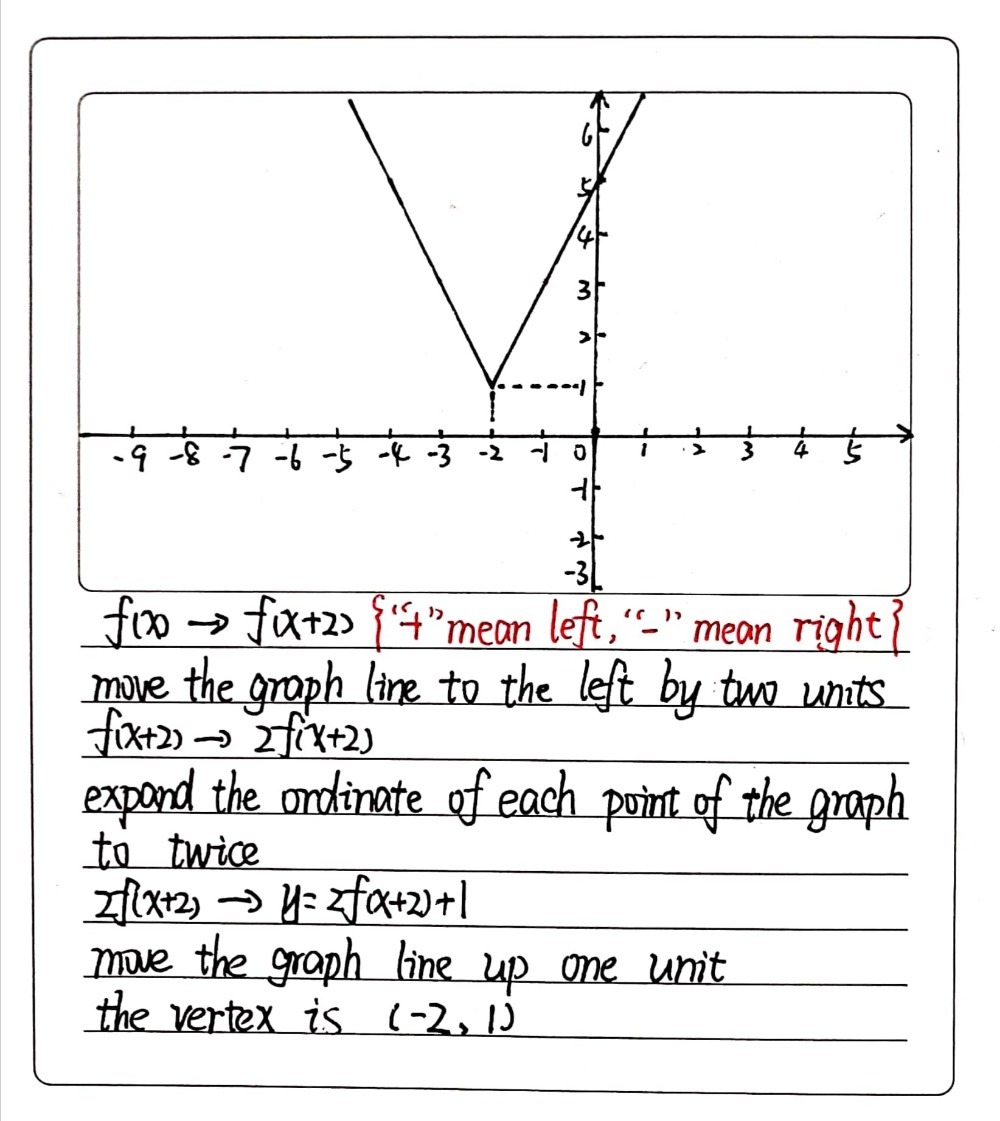 6
5
4
3
2
1
-9 -8 -7 -6 -5 -4 -3 -2 -1 0 1 2 3 4 5
-1
-2
-3
f(x) → f(x+2) {"+" mean left, "-" mean right}
move the graph line to the left by two units
f(x+2) → 2f(x+2)
expand the ordinate of each point of the graph
to twice
2f(x+2) → y = 2f(x+2)+1
move the graph line up one unit
the vertex is (-2, 1)